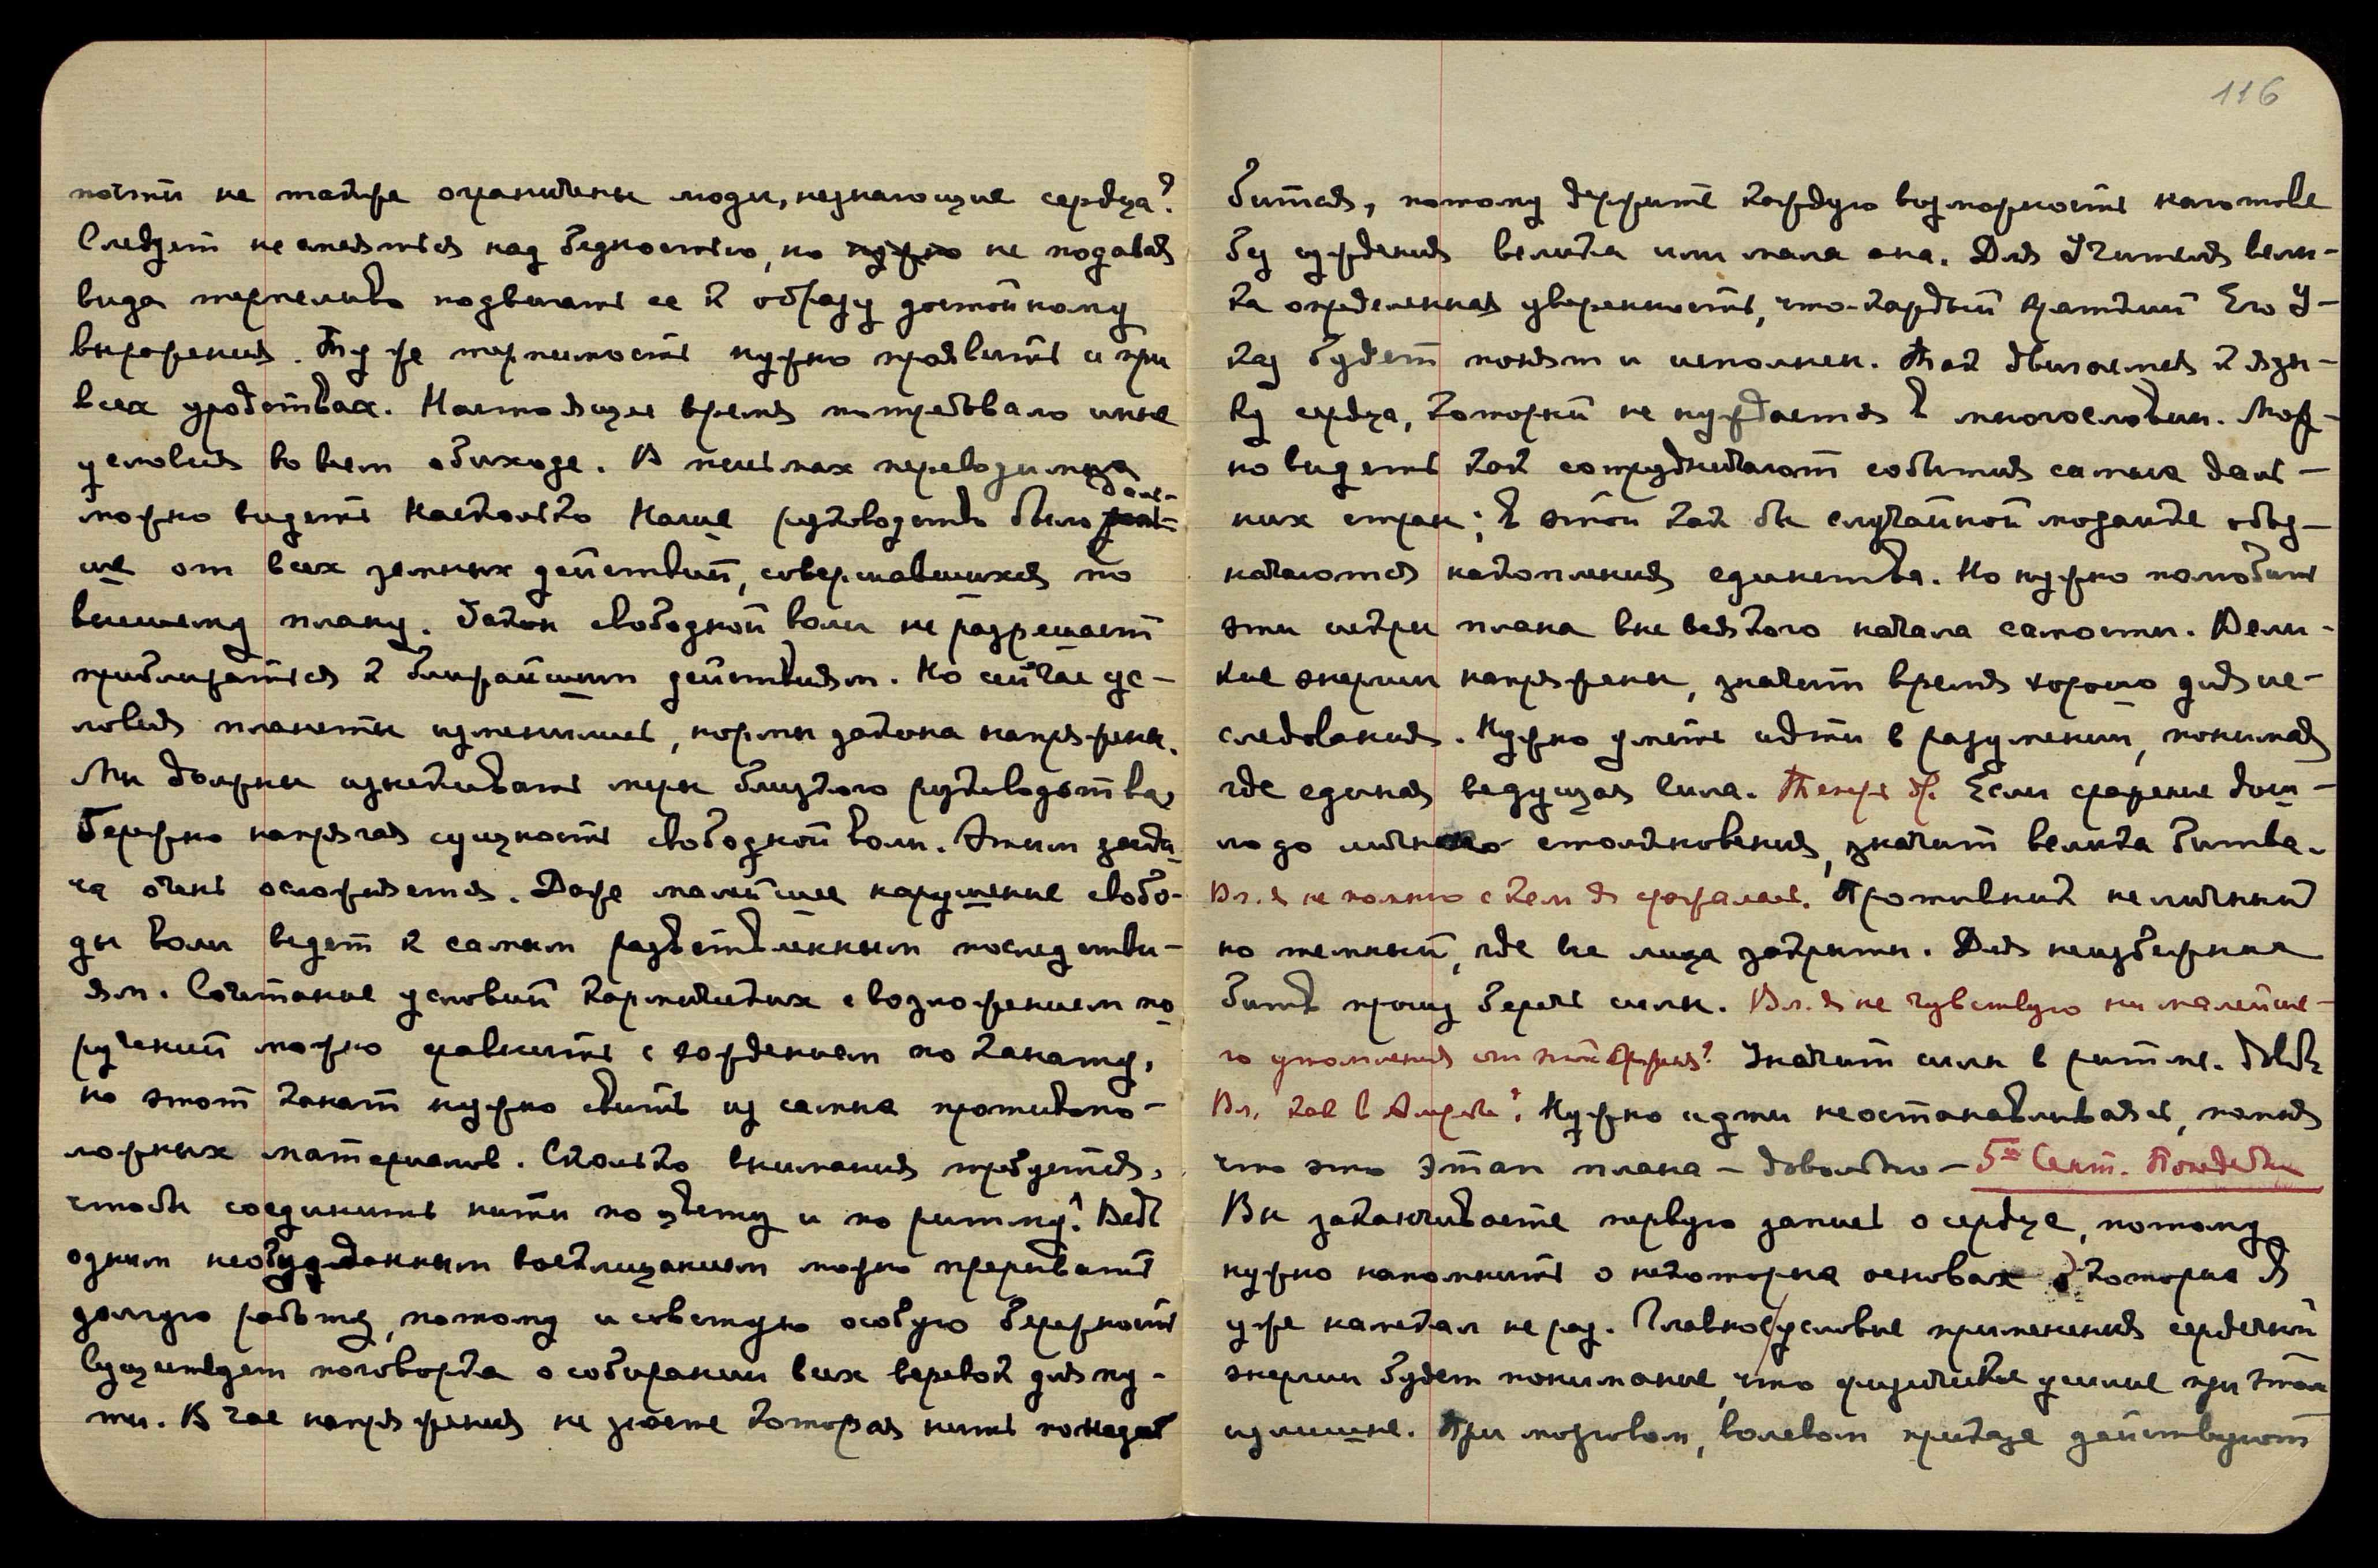 почти не также ограничены люди, незнающие сердца?
Следует не смеяться над бедностью, но нужно не подавая
вида терпеливо подвигать ее к образу достойному
выражения. Ту же терпимость нужно проявить и при
всех уродствах. Настоящее время потребовало иные
условия во всем обиходе. В письмах переводимых
можно видеть насколько Наше руководство было даль-
ше от всех земных действий, совершавшихся по
высшему плану. Закон свободной воли не разрешает
приближаться к ближайшим действиям. Но сейчас ус-
ловия планеты изменились, нормы закона напряжены.
Мы должны изыскивать меры близкого руководства,
бережно напрягая сущность свободной воли. Этим зада-
ча очень осложняется. Даже малейшее нарушение свобо-
ды воли ведет к самым разветвленным последстви-
ям. Сочетание условий кармических с возложением по
ручений можно сравнить с хождением по канату,
но этот канат нужно свить из самых противопо-
ложных материалов. Сколько внимания требуется,
чтобы соединить нити по цвету и по ритму! Ведь
одним необузданным восклицанием можно прерывать
долгую работу, потому и советую особую бережность
Существует поговорка о собирании всех веревок для пу-
ти. В час напряжения не знаете которая нить понадо
116
биться, потому держите каждую возможность наготове
без суждения велика или мала она. Для Учителя вели-
ка определенная уверенность, что каждый краткий Его У-
каз будет понят и исполнен. Так двигаемся к язы-
ку сердца, который не нуждается в многословии. Мож-
но видеть как сотрудничают события самых даль-
них стран; в этой как бы случайной мозаике обоз-
начаются накопления единства. Но нужно полюбить
эти искры плана вне всякого начала самости. Вели-
кие энергии напряжены, значит время хорошо для ис-
следования. Нужно уметь идти в разумении, понимая
где единая ведущая сила. Если сражение дош-
ло до личного столкновения, значит велика битва.
Вл. я не помню с кем я сражалась. Противник не личный
но темный, где все лица закрыты. Для неизбежных
битв прошу беречь силы. Вл. я не чувствую ни малейше-
го утомления Значит силы в ритме.
Вл. как в Нужно идти не останавливаясь, помня
что это этап плана – довольно – 5го Сент. Понедельн
Вы заканчиваете первую запись о сердце, потому
нужно напомнить о некоторых основах о которых Я
уже намекал не раз. Главное условие применения сердечной
энергии будет понимание, что физическое усилие при этом
излишне. При мозговом, волевом приказе действуют